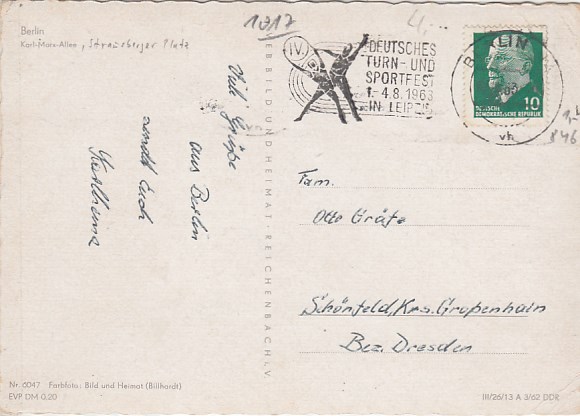 1017
4,-
Berlin
Karl-Marx-Allee, Strausberger Platz
IV.
DEUTSCHES
TURN- UND
SPORTFEST
1.-4.8.1963
IN LEIPZIG
BERLIN
10
DEUTSCHE
DEMOKRATISCHE REPUBLIK
vh
1,-
846
Viel Grüße
aus Berlin
sendt Euch
Karlheinz
BILD UND HEIMAT REICHENBACH i. V.
Fam.
Otto Gräfe
Schönfeld, Krs. Großenhain
Bez. Dresden
Nr. 6047 Farbfoto: Bild und Heimat (Billhardt)
EVP DM 0,20
III/26/13 A 3/62 DDR